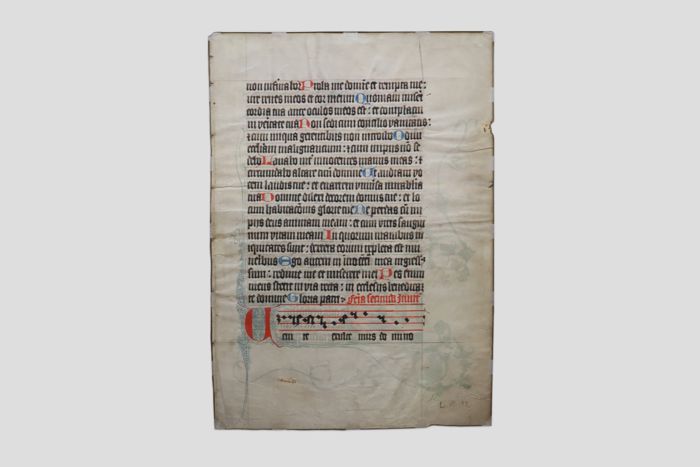 non infirmabor Proba me domine et tempta me:
ure renes meos et cor meum Quoniam miseri
cordia tua ante oculos meos est: et complacui
in veritate tua Non sedi cum concilio vanitatis:
et cum iniqua gerentibus non introibo Odivi
eccliam malignantium: et cum impiis nō se
debo Lavabo int innocentes manus meas: et
circumdabo altare tuū domine Ut audiam vo
cem laudis tue: et enarrem univsa mirabilia
tua Domine dilexi decorem domus tue: et lo
cum habitacōnis glorie tue Ne perdas cū im
piis deus animam meam: et cum viris sangui
num vitam meam In quorum manibus in
iquitates sunt: dextera eorum repleta est mu
neribus Ego autem in mea ingressꝰ
sum: redime me et miserere mei Pes enim
meus stetit in via recta: in ecclesiis benedicā
te domine Gloria patri Feria secunda Invit
Ueni te exulte mus do mino